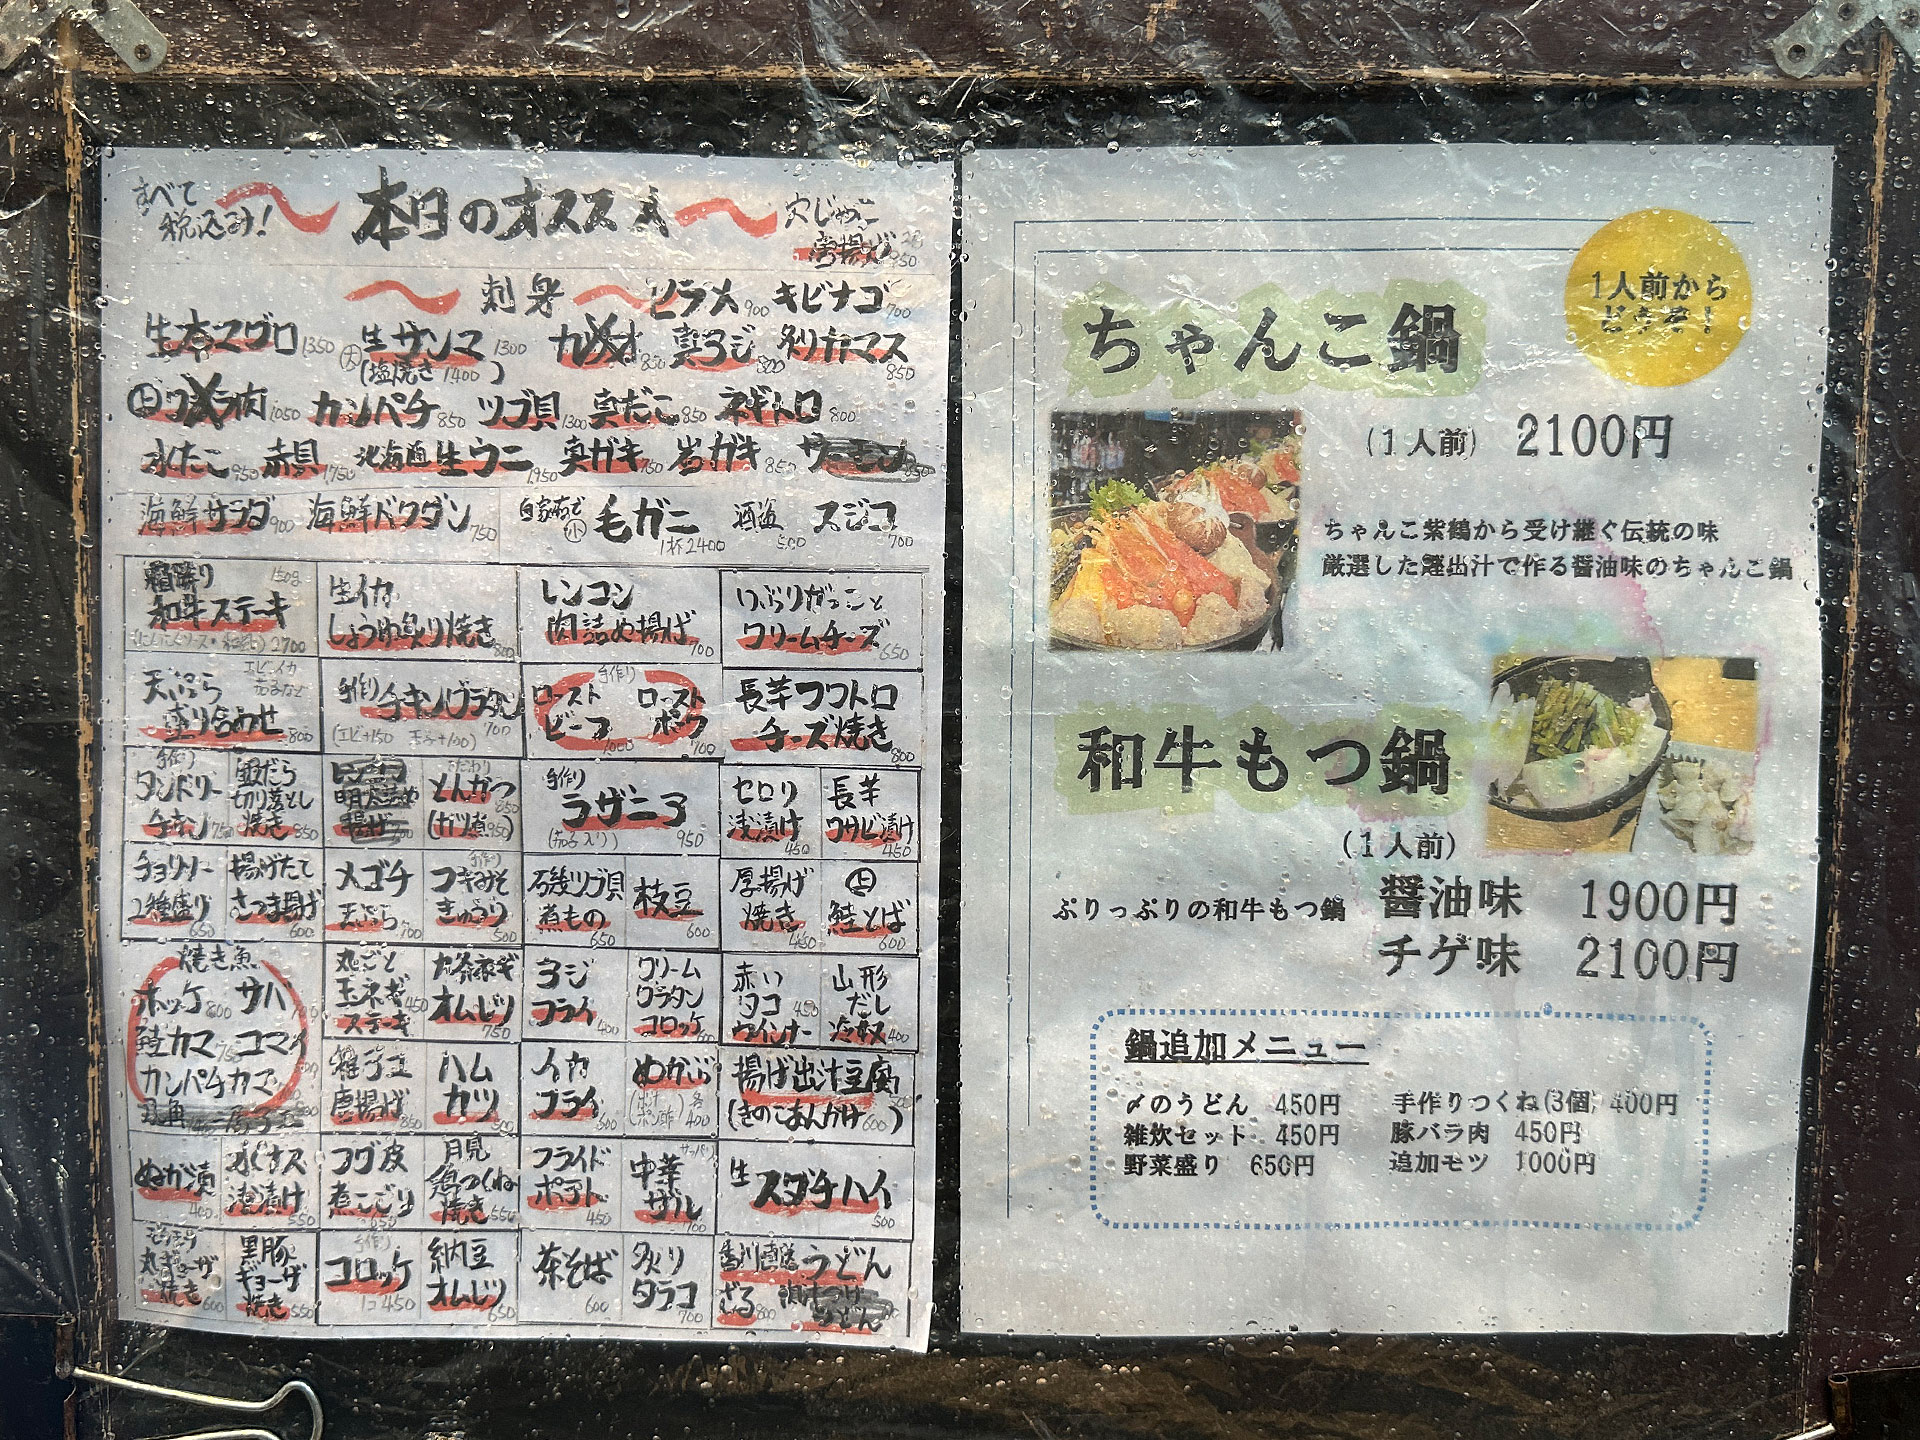 すべて
税込み!
本日のオススメ
穴じゃこ
唐揚げ
850
刺身
ヒラメ 900 キビナゴ 700
生本マグロ 1350 大 生サンマ 1300 カツオ 850 真アジ 800 炙りカマス 850
(塩焼き 1400)
カンパチ 850 ツブ貝 1300 真だこ 850 ネギトロ 800
水たこ 950 赤貝 1,750 北海道生ウニ 1,950 真ガキ 750 岩ガキ 850 サーモン 850
海鮮サラダ 900 海鮮バクダン 750 自家茹で 小 毛ガニ 1杯2400 酒盗 500 スジコ 700
霜降り 150g
和牛ステーキ
2700
生イカ
しょうゆ炙り焼き 800
レンコン
肉詰め揚げ 700
いぶりがっこと
クリームチーズ 650
天ぷら エビ・イカ
茄子など
盛り合わせ 800
手作り チキングラタン 700
(エビ+150 玉子+100)
手作り
ロースト ロースト
ビーフ 1000 ポーク 700
長芋フワトロ
チーズ焼き 800
手作り
タンドリー
チキン 750
銀だら
切り落とし
焼き 850
明太詰め
揚げ 700
こだわり
とんかつ 850
(カツ煮 950)
手作り
ラザニア
(茄子入り) 950
セロリ
浅漬け 450
長芋
ワサビ漬け 450
チョリソー
2種盛り 650
揚げたて
さつま揚げ 600
メゴチ
天ぷら 700
手作り
コチュみそ
きゅうり 500
磯ツブ貝
煮もの 650
枝豆 600
厚揚げ
焼き 450
上
鮭とば 600
焼き魚
ホッケ 800 サバ 700
鮭カマ 750 コマイ
カンパチカマ
丸ごと
玉ネギ 450
ステーキ
九条ネギ
オムレツ 750
アジ
フライ 400
クリーム
グラタン
コロッケ 600
赤い
タコ 450
ウインナー
山形
だし
冷奴 400
唐揚げ 850
ハム
カツ 500
イカ
フライ 600
めかぶ
(出汁 ポン酢) 各400
揚げ出汁豆腐
(きのこあんかけ 600)
ぬか漬 400
水ナス
浅漬け 550
フグ皮
煮こごり 650
月見
鶏つくね
焼き 550
フライド
ポテト 450
さっぱり
中華
サル 700
生
スダチハイ 500
もちもち
丸ギョーザ
焼き 600
黒豚
ギョーザ
焼き 550
手作り
コロッケ
1コ 450
納豆
オムレツ 650
茶そば
600
炙り
タラコ
700
香川直送 うどん
ざる 800 漬けつけ
うどん
1人前から
どうぞ!
ちゃんこ鍋
(1人前) 2100円
ちゃんこ紫鶴から受け継ぐ伝統の味
厳選した鰹出汁で作る醤油味のちゃんこ鍋
和牛もつ鍋
(1人前)
ぷりっぷりの和牛もつ鍋 醤油味 1900円
チゲ味 2100円
鍋追加メニュー
〆のうどん 450円 手作りつくね(3個) 400円
雑炊セット 450円 豚バラ肉 450円
野菜盛り 650円 追加モツ 1000円